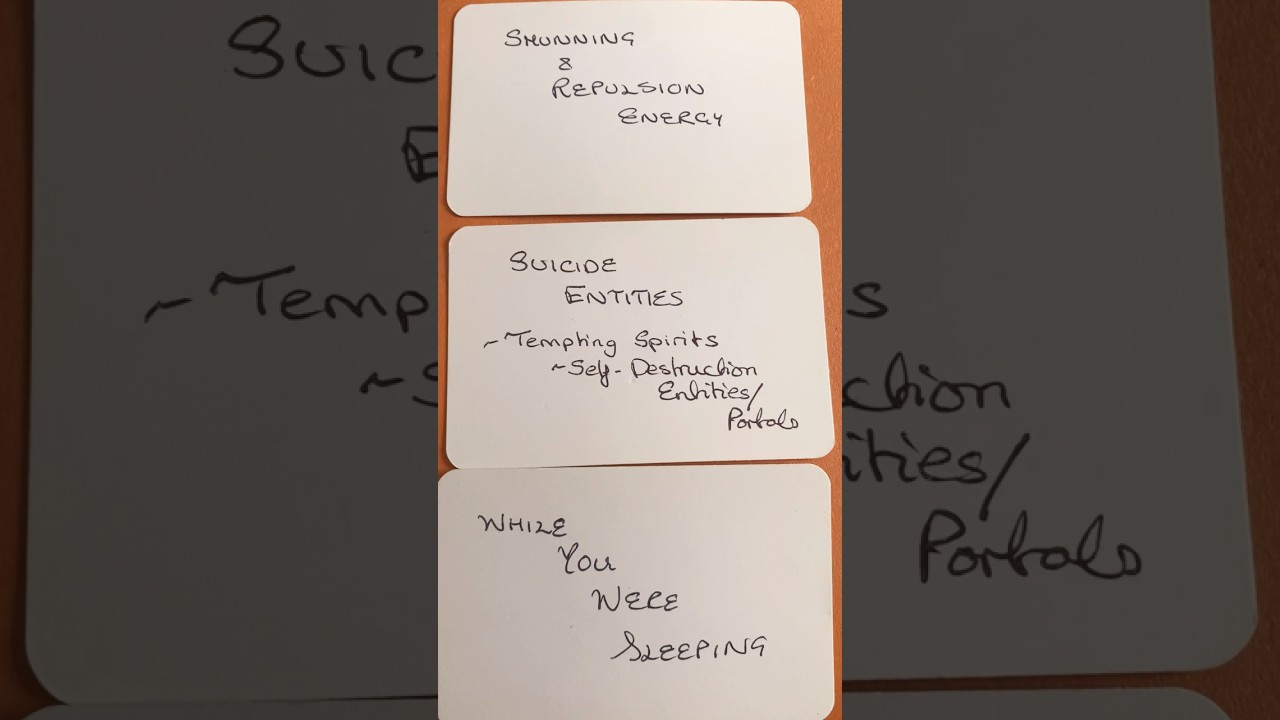 SHUNNING
&
REPULSION
ENERGY
SUICIDE
ENTITIES
~Tempting Spirits
~Self-Destruction
Entities/
Portals
WHILE
YOU
WERE
SLEEPING